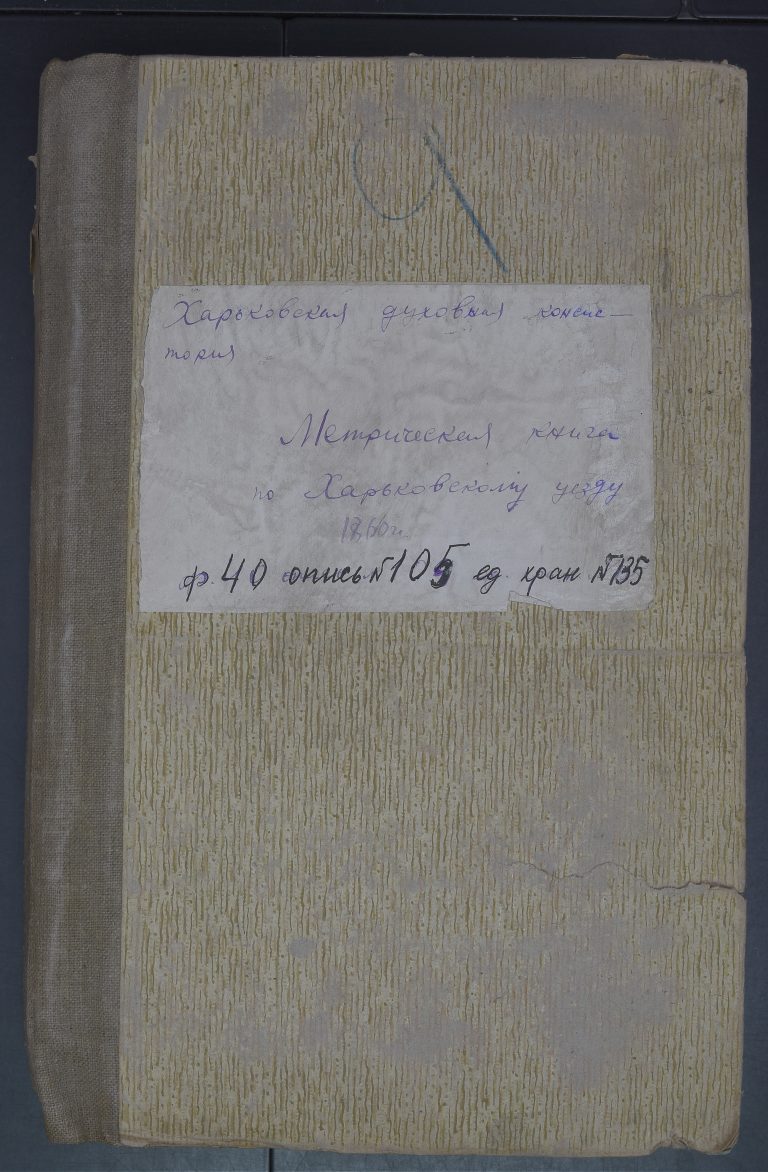 9
Харьковская духовная консис-
тория
Метрическая книга
по Харьковскому уезду
1860г.
ф. 40 опись № 105 ед. хран № 135